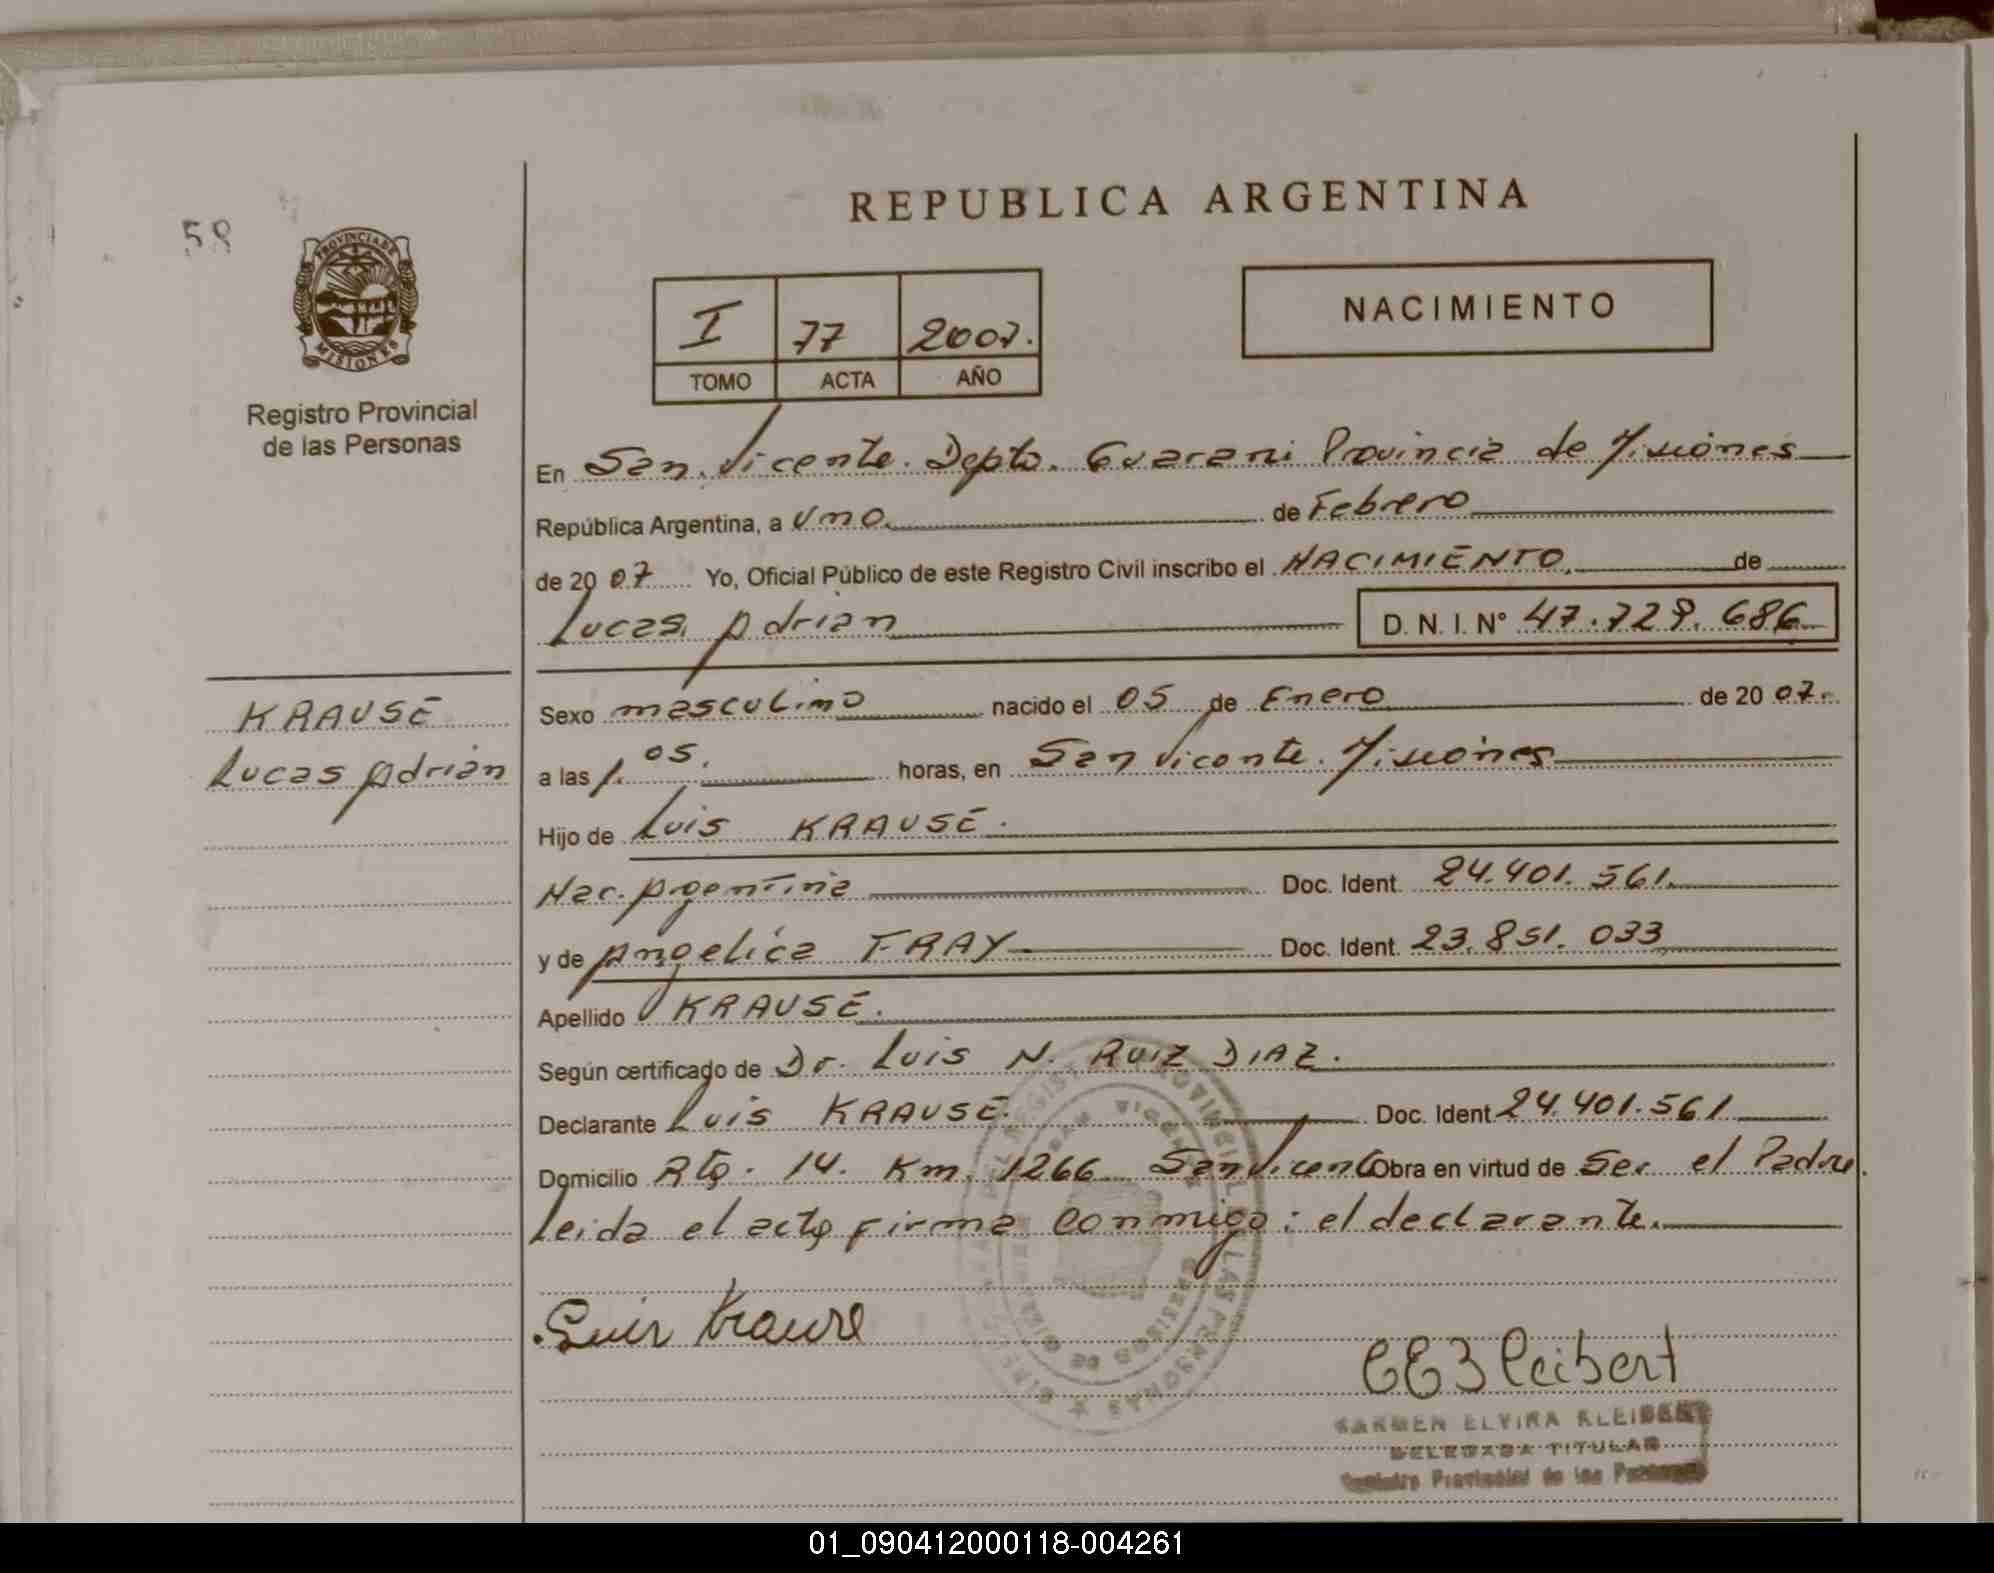 58
PROVINCIA DE
MISIONES
Registro Provincial
de las Personas
REPUBLICA ARGENTINA
I 77 2007.
TOMO ACTA AÑO
NACIMIENTO
En San Vicente. Depto. Guarani Provincia de Misiones
República Argentina, a uno de Febrero
de 20 07 Yo, Oficial Público de este Registro Civil inscribo el NACIMIENTO de
Lucas Adrian D. N. I. Nº 47.729.686
KRAUSE
Lucas Adrian
Sexo masculino nacido el 05 de Enero de 20 07.
a las 1.05. horas, en San Vicente. Misiones
Hijo de Luis KRAUSE.
Nac. Argentina Doc. Ident. 24.401.561.
y de Angelica FRAY Doc. Ident. 23.851.033
Apellido KRAUSE.
Según certificado de Dr. Luis N. RUIZ DIAZ.
Declarante Luis KRAUSE. Doc. Ident. 24.401.561
Domicilio Rta. 14. Km. 1266 San Vicente Obra en virtud de Ser el Padre.
Leida el acta firma conmigo: el declarante.
Luis Krause
CEB Kleibert
CARMEN ELVIRA KLEIBERT
DELEGADA TITULAR
Registro Provincial de las Personas
01_090412000118-004261